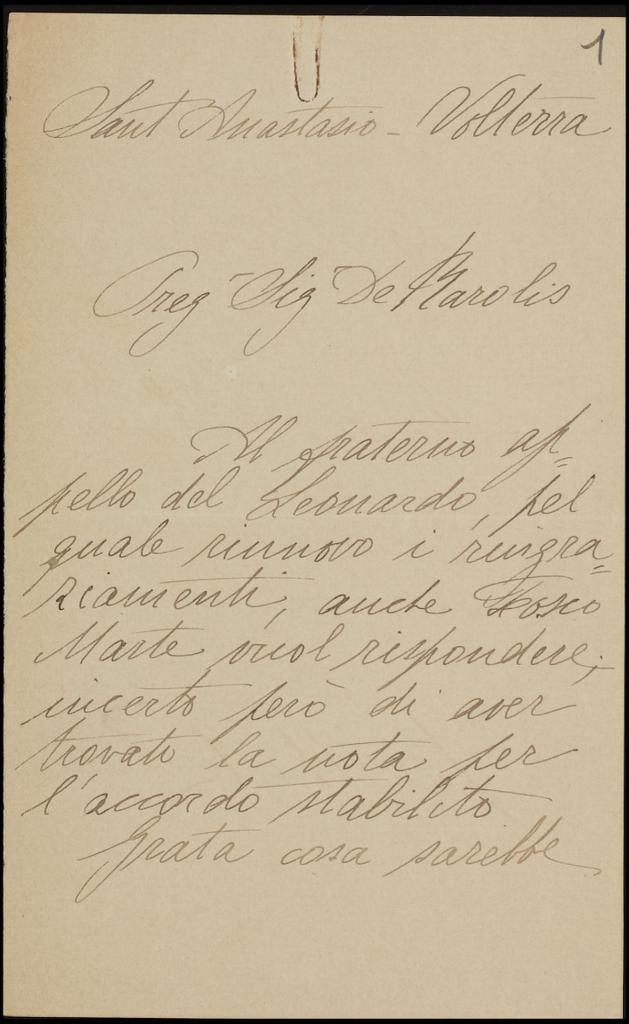 1
Sant Anastasio - Volterra
Preg Sig De Karolis
Al fraterno ap=
pello del Leonardo, pel
quale rinnovo i ringra=
ziamenti, anche Fosco
Marte vuol rispondere;
incerto però di aver
trovato la nota per
l'accordo stabilito
Grata cosa sarebbe